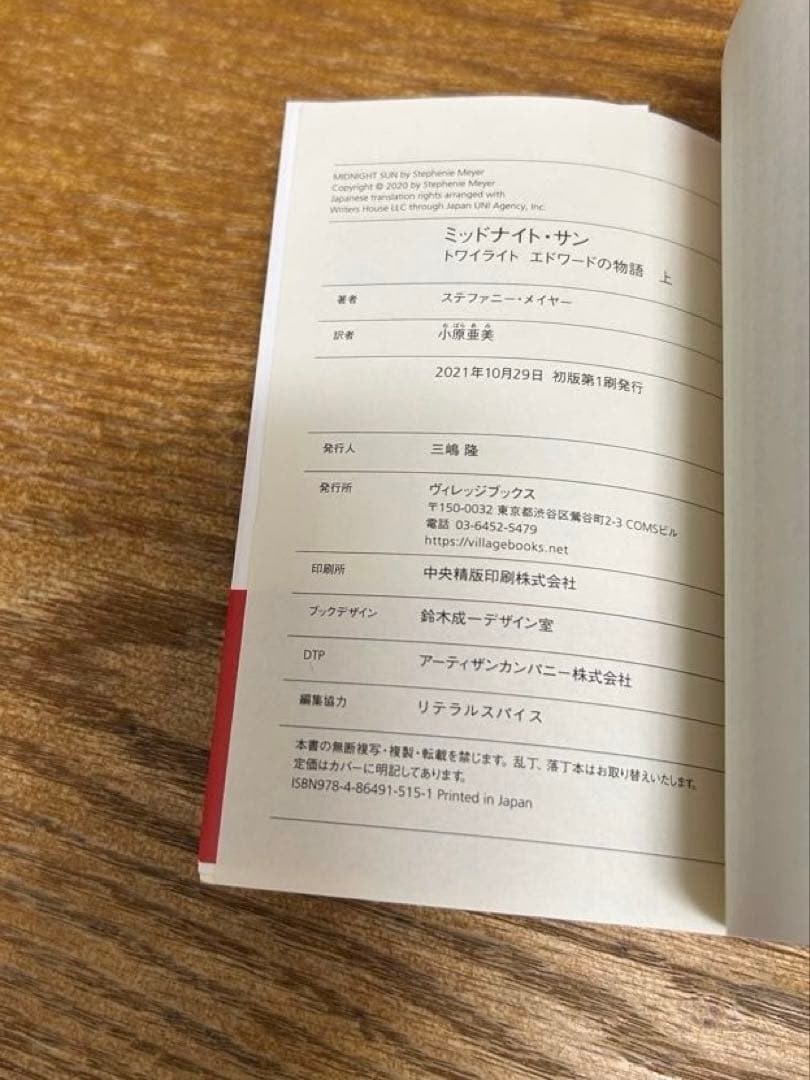 MIDNIGHT SUN by Stephenie Meyer
Copyright © 2020 by Stephenie Meyer
Japanese translation rights arranged with
Writers House LLC through Japan UNI Agency, Inc.
ミッドナイト・サン
トワイライト エドワードの物語 上
著者 ステファニー・メイヤー
訳者 小原亜美
2021年10月29日 初版第1刷発行
発行人 三嶋 隆
発行所 ヴィレッジブックス
〒150-0032 東京都渋谷区鶯谷町2-3 COMSビル
電話 03-6452-5479
https://villagebooks.net
印刷所 中央精版印刷株式会社
ブックデザイン 鈴木成一デザイン室
DTP アーティザンカンパニー株式会社
編集協力 リテラルスパイス
本書の無断複写・複製・転載を禁じます。乱丁、落丁本はお取り替えいたします。
定価はカバーに明記してあります。
ISBN978-4-86491-515-1 Printed in Japan